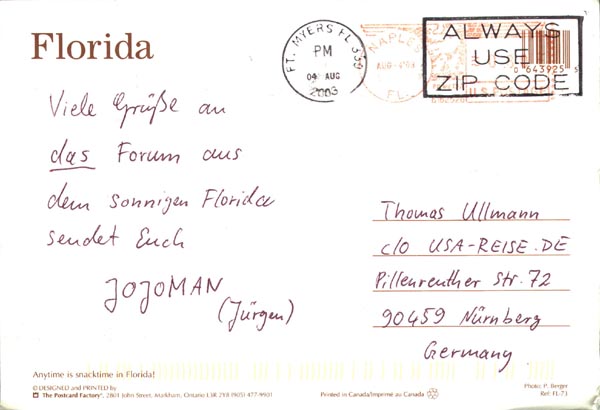 Florida
FT. MYERS FL 339
PM
04 AUG
2003
NAPLES
FL
ALWAYS
USE
ZIP CODE
Viele Grüße an
das Forum aus
dem sonnigen Florida
sendet Euch
JOJOMAN
(Jürgen)
Thomas Ullmann
c/o USA-REISE.DE
Pillenreuther Str. 72
90459 Nürnberg
Germany
Anytime is snacktime in Florida!
© DESIGNED and PRINTED by
The Postcard Factory, 2801 John Street, Markham, Ontario L3R 2Y8 (905) 477-9901
Printed in Canada/Imprimé au Canada
Photo: P. Berger
Ref: FL-73